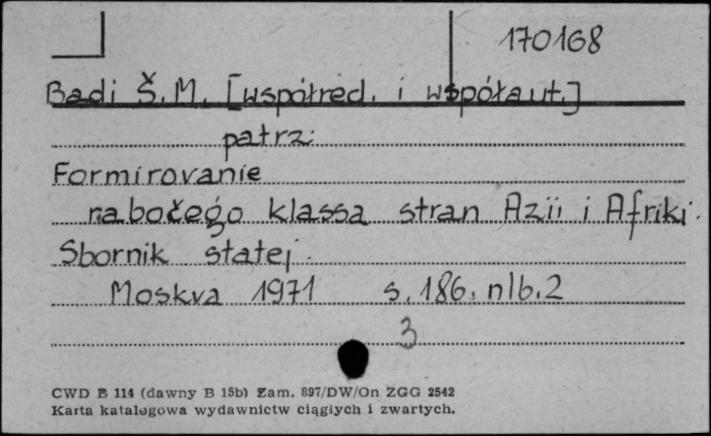 170168
Badi Š.M. [współred. i współaut.]
patrz:
Formirovanie
rabočego klassa stran Azii i Afriki.
Sbornik statej.
Moskva 1971 s. 186, nlb. 2
3
CWD B 114 (dawny B 15b) Zam. 897/DW/On ZGG 2542
Karta katalogowa wydawnictw ciągłych i zwartych.